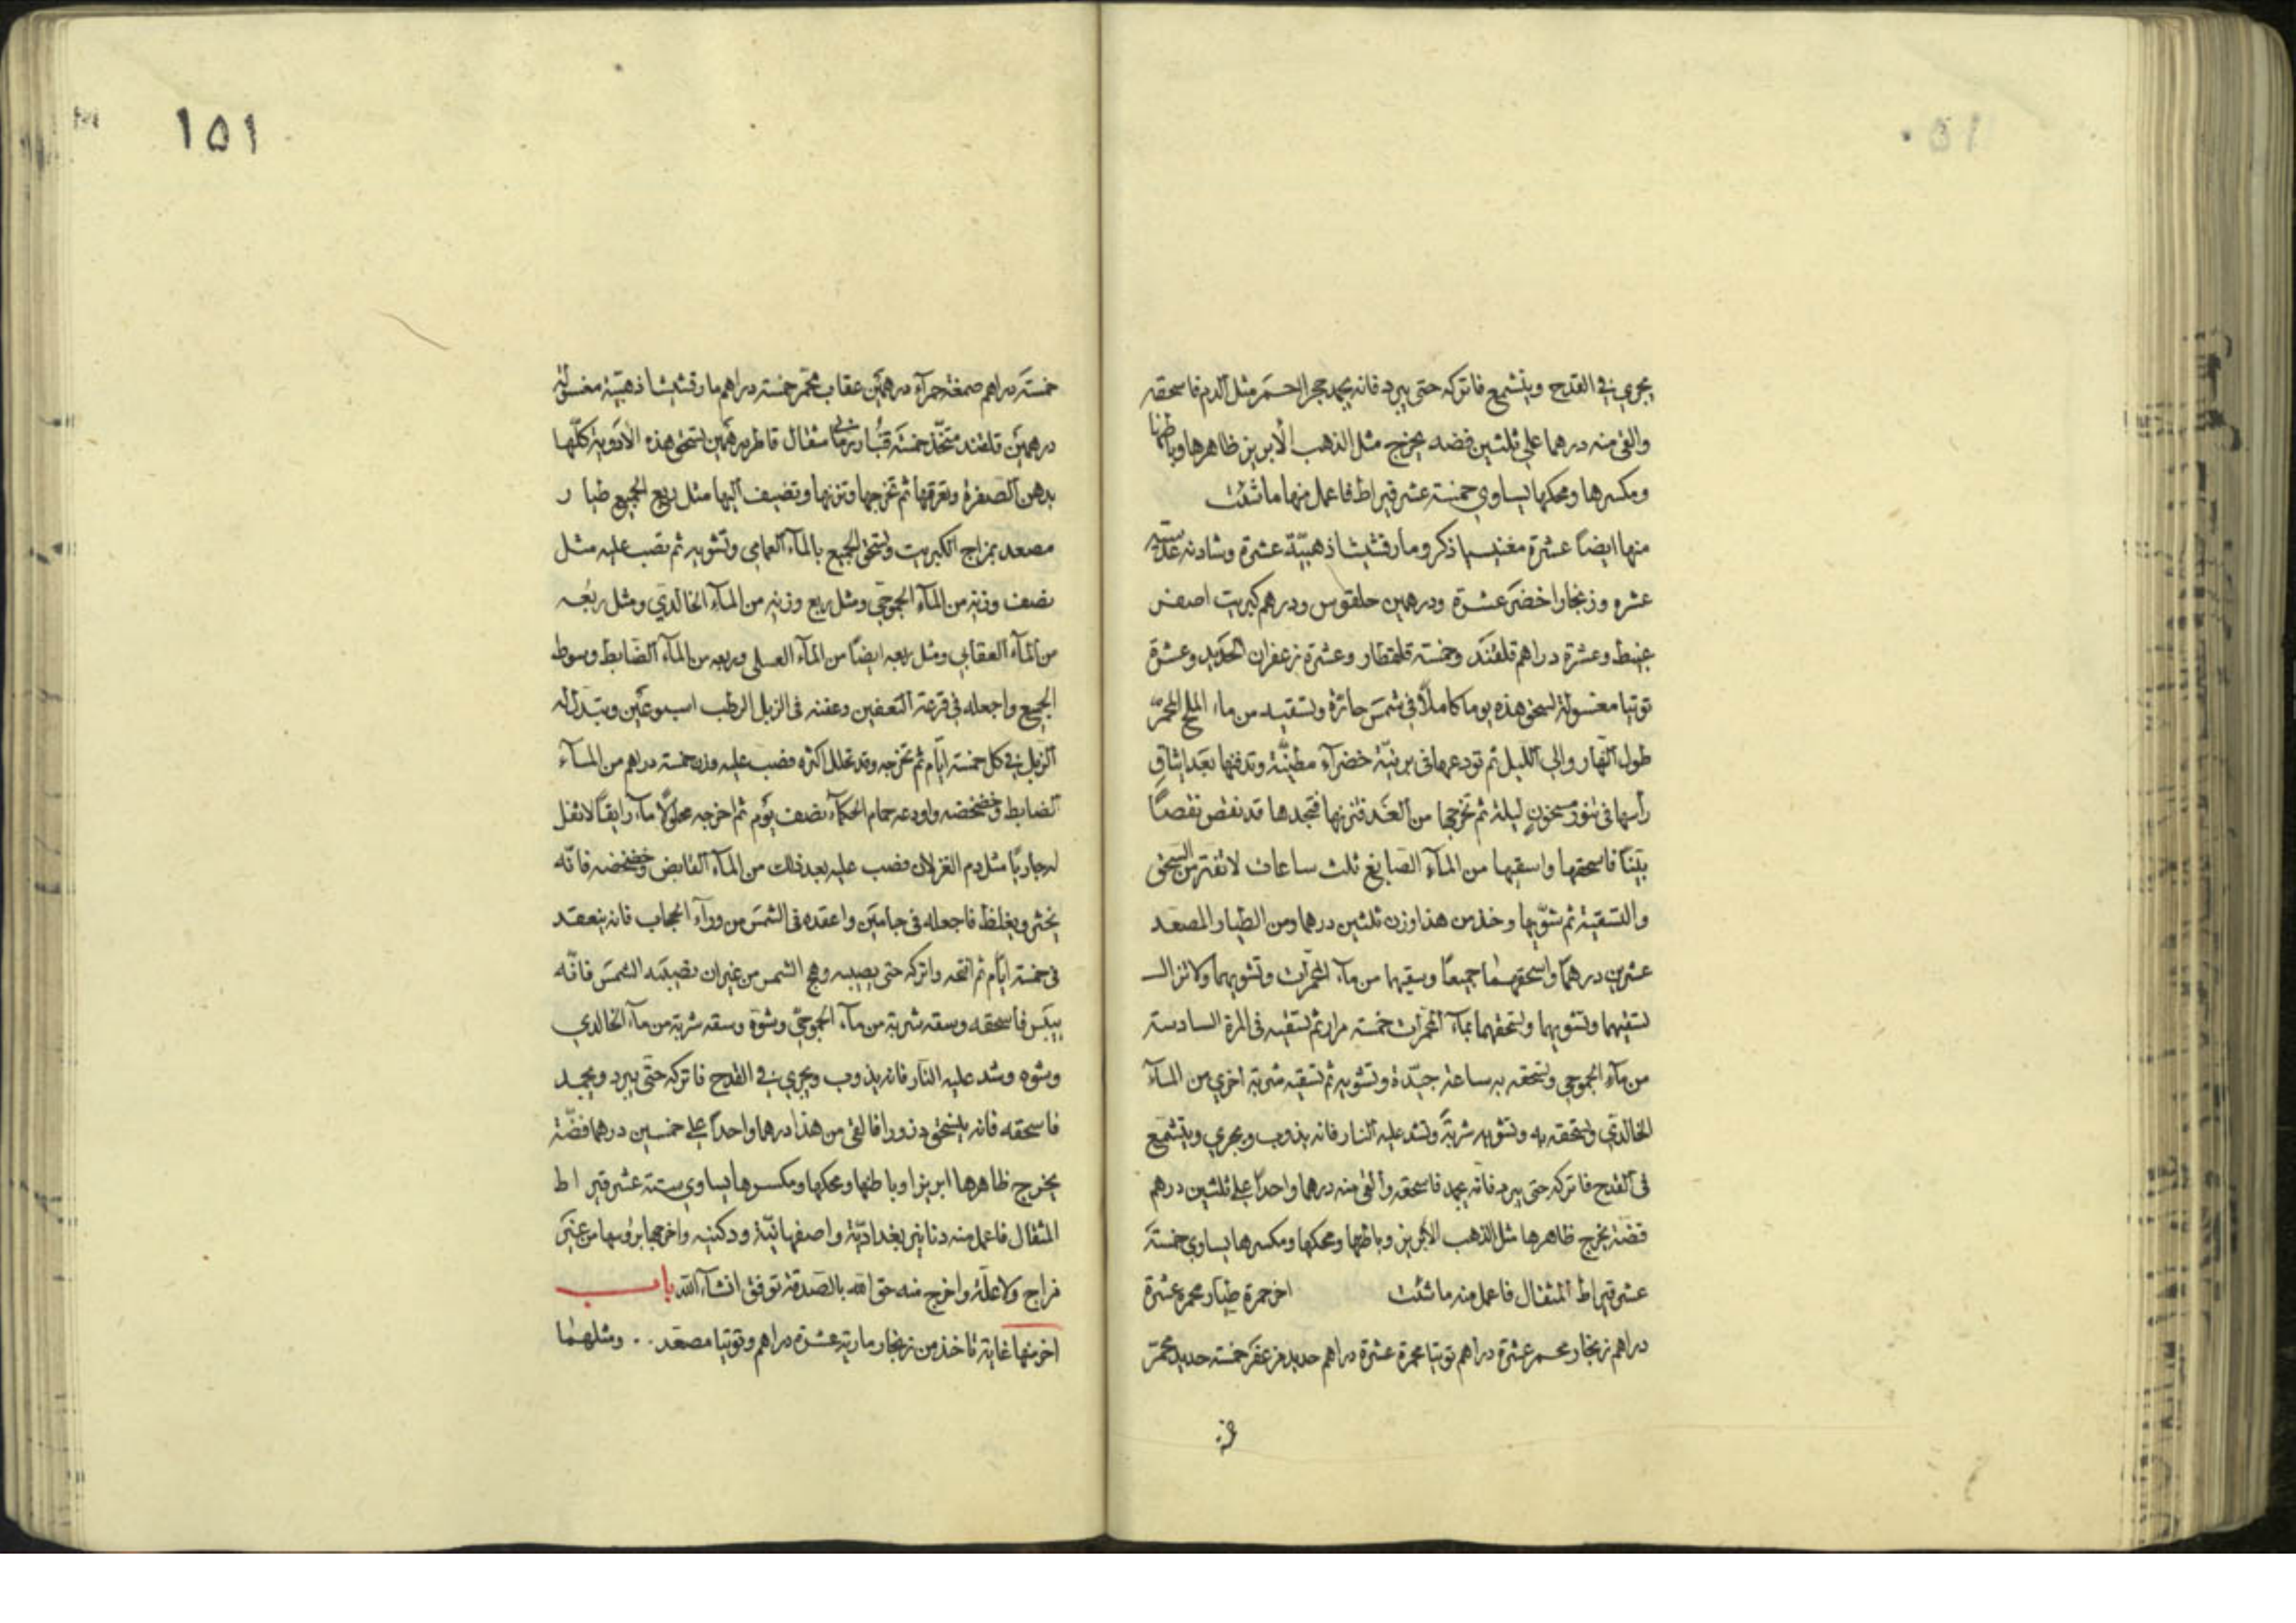 يجري في القدح ويتشمع فاتركه حتى يبرد فانه يجمد حجرا احمر مثل الدم فاسحقه
والق منه درهما علي ثلثين فضه يخرج مثل الذهب الابريز ظاهرها وباطنها
ومكسرها ومحكها يساوي خمسة عشر قيراط فاعمل منها ما شئت
منها ايضا عشرة مغنيسيا ذكر ومارقشيشا ذهبية عشرة وشادنه عدسيه
عشره وزنجار اخضر عشرة ودرهمين حلقوس ودرهم كبريت اصفر
عبيط وعشرة دراهم قلقند وخمسة قلقطار وعشرة زعفران الحديد وعشرة
توتيا مغسولة تسحق هذه يوما كاملا في شمس حارة وتسقيه من ماء الملح المحمر
طول النهار والي الليل ثم تودعها في برنية خضراء مطينة وتدفنها بعد ايثاق
رأسها في تنور مسخون ليلة ثم تخرجها من الغد فتزنها فتجدها قد نقص نقصا
بينا فاسحقها واسقها من الماء الصابغ ثلث ساعات لا تفتر من السحق
والتسقية ثم شويها وخذ من هذا وزن ثلثين درهما ومن الطيار المصعد
عشرين درهما واسحقهما جميعا وسقيهما من ماء المحمرات وتشويهما ولا تزال
تسقيهما وتشويهما وتسحقهما بماء المحمرات خمسة مرار ثم تسقيه في المرة السادسة
من ماء الجموحي وتسحقه به ساعة جيدة وتشويه ثم تسقيه شربة اخري من الماء
الخالدي وتسحقه به وتشويه شربة وتشد عليه النار فانه يذوب ويجري ويتشمع
في القدح فاتركه حتى يبرد فانه يجمد فاسحقه والق منه درهما واحدا علي ثلثين درهم
فضة يخرج ظاهرها مثل الذهب الابريز وباطنها ومحكها ومكسرها يساوي خمسة
عشر قيراط المثقال فاعمل منه ما شئت اخر حمرة طيار محمره عشرة
دراهم زنجار محمر عشرة دراهم توتيا محمرة عشرة دراهم حديد مزعفر خمسة حديد محمر
١٥١
خمسة دراهم صمغة حمراء درهمين عقاب محمر خمسة دراهم مارقشيشا ذهبية مغسولة
درهمين قلقند متخذ خمسة مثقال قاطر درهمين تسحق هذه الادوية كلها
بدهن الصفرة وتعرقها ثم تخرجها وتزنها وتضيف اليها مثل ربع الجميع طيار
مصعد بمزاج الكبريت وتسحق الجميع بالماء العمامي وتشويه ثم تصب عليه مثل
نصف وزنه من الماء الجموحي ومثل ربع وزنه من الماء الخالدي ومثل ربعه
من الماء العقابي ومثل ربعه ايضا من الماء العسلي وربعه من الماء الضابط وسوط
الجميع واجعله في قرعة التعفين وعفنه في الزبل الرطب اسبوعين وتبدل له
الزبل في كل خمسة ايام ثم تخرجه وقد تحلل اكثره فصب عليه وزن خمسة دراهم من الماء
الضابط وخضخضه واودعه حمام الحكماء نصف يوم ثم اخرجه محلولا ماء رايقا لا ثفل
له جاريا مثل دم الغزلان فصب عليه بعد ذلك من الماء القابض وخضخضه فانه
يخثر ويغلظ فاجعله في جامين واعقده في الشمس من وراء الحجاب فانه ينعقد
في خمسة ايام ثم افتحه واتركه حتى يصيبه وهج الشمس من غير ان تصيبه الشمس فانه
ييبس فاسحقه وسقه شربة من ماء الجموحي وشوه وسقه شربة من ماء الخالدي
وشوه وشد عليه النار فانه يذوب ويجري في القدح فاتركه حتى يبرد ويجمد
فاسحقه فانه ينسحق ذرورا فالق من هذا درهما واحدا علي خمسين درهما فضة
يخرج ظاهرها ابريزا وباطنها ومحكها ومكسرها يساوي ستة عشر قيراط
المثقال فاعمل منه دنانير بغدادية واصفهانية ودكنيه واخرجها برؤسها من غير
مزاج ولا علة واخرج منه حق الله بالصدقة توفق انشاء الله باب
اخر منها غاية تاخذ من زنجار ومارتيه عشرة دراهم وتوتيا مصعد .. ومثلهما